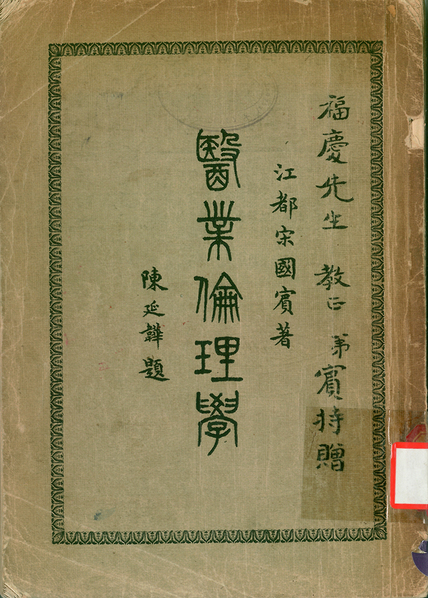 福慶先生 教正 弟賓持贈
江都宋國賓著
醫業倫理學
陳延韡題